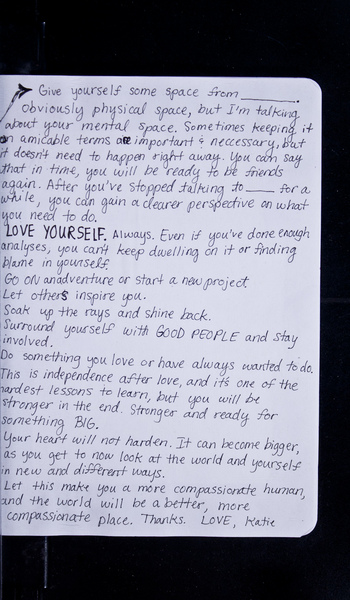 Give yourself some space from ________.
Obviously physical space, but I'm talking
about your mental space. Sometimes keeping it
on amicable terms are important & neccessary, but
it doesn't need to happen right away. You can say
that in time, you will be ready to be friends
again. After you've stopped talking to ____ for a
while, you can gain a clearer perspective on what
you need to do.
LOVE YOURSELF. Always. Even if you've done enough
analyses, you can't keep dwelling on it or finding
blame in yourself.
GO ON anadventure or start a new project
Let others inspire you.
Soak up the rays and shine back.
Surround yourself with GOOD PEOPLE and stay
involved.
Do something you love or have always wanted to do.
This is independence after love, and it's one of the
hardest lessons to learn, but you will be
stronger in the end. Stronger and ready for
something BIG.
Your heart will not harden. It can become bigger,
as you get to now look at the world and yourself
in new and different ways.
Let this make you a more compassionate human,
and the world will be a better, more
compassionate place. Thanks. LOVE, Katie